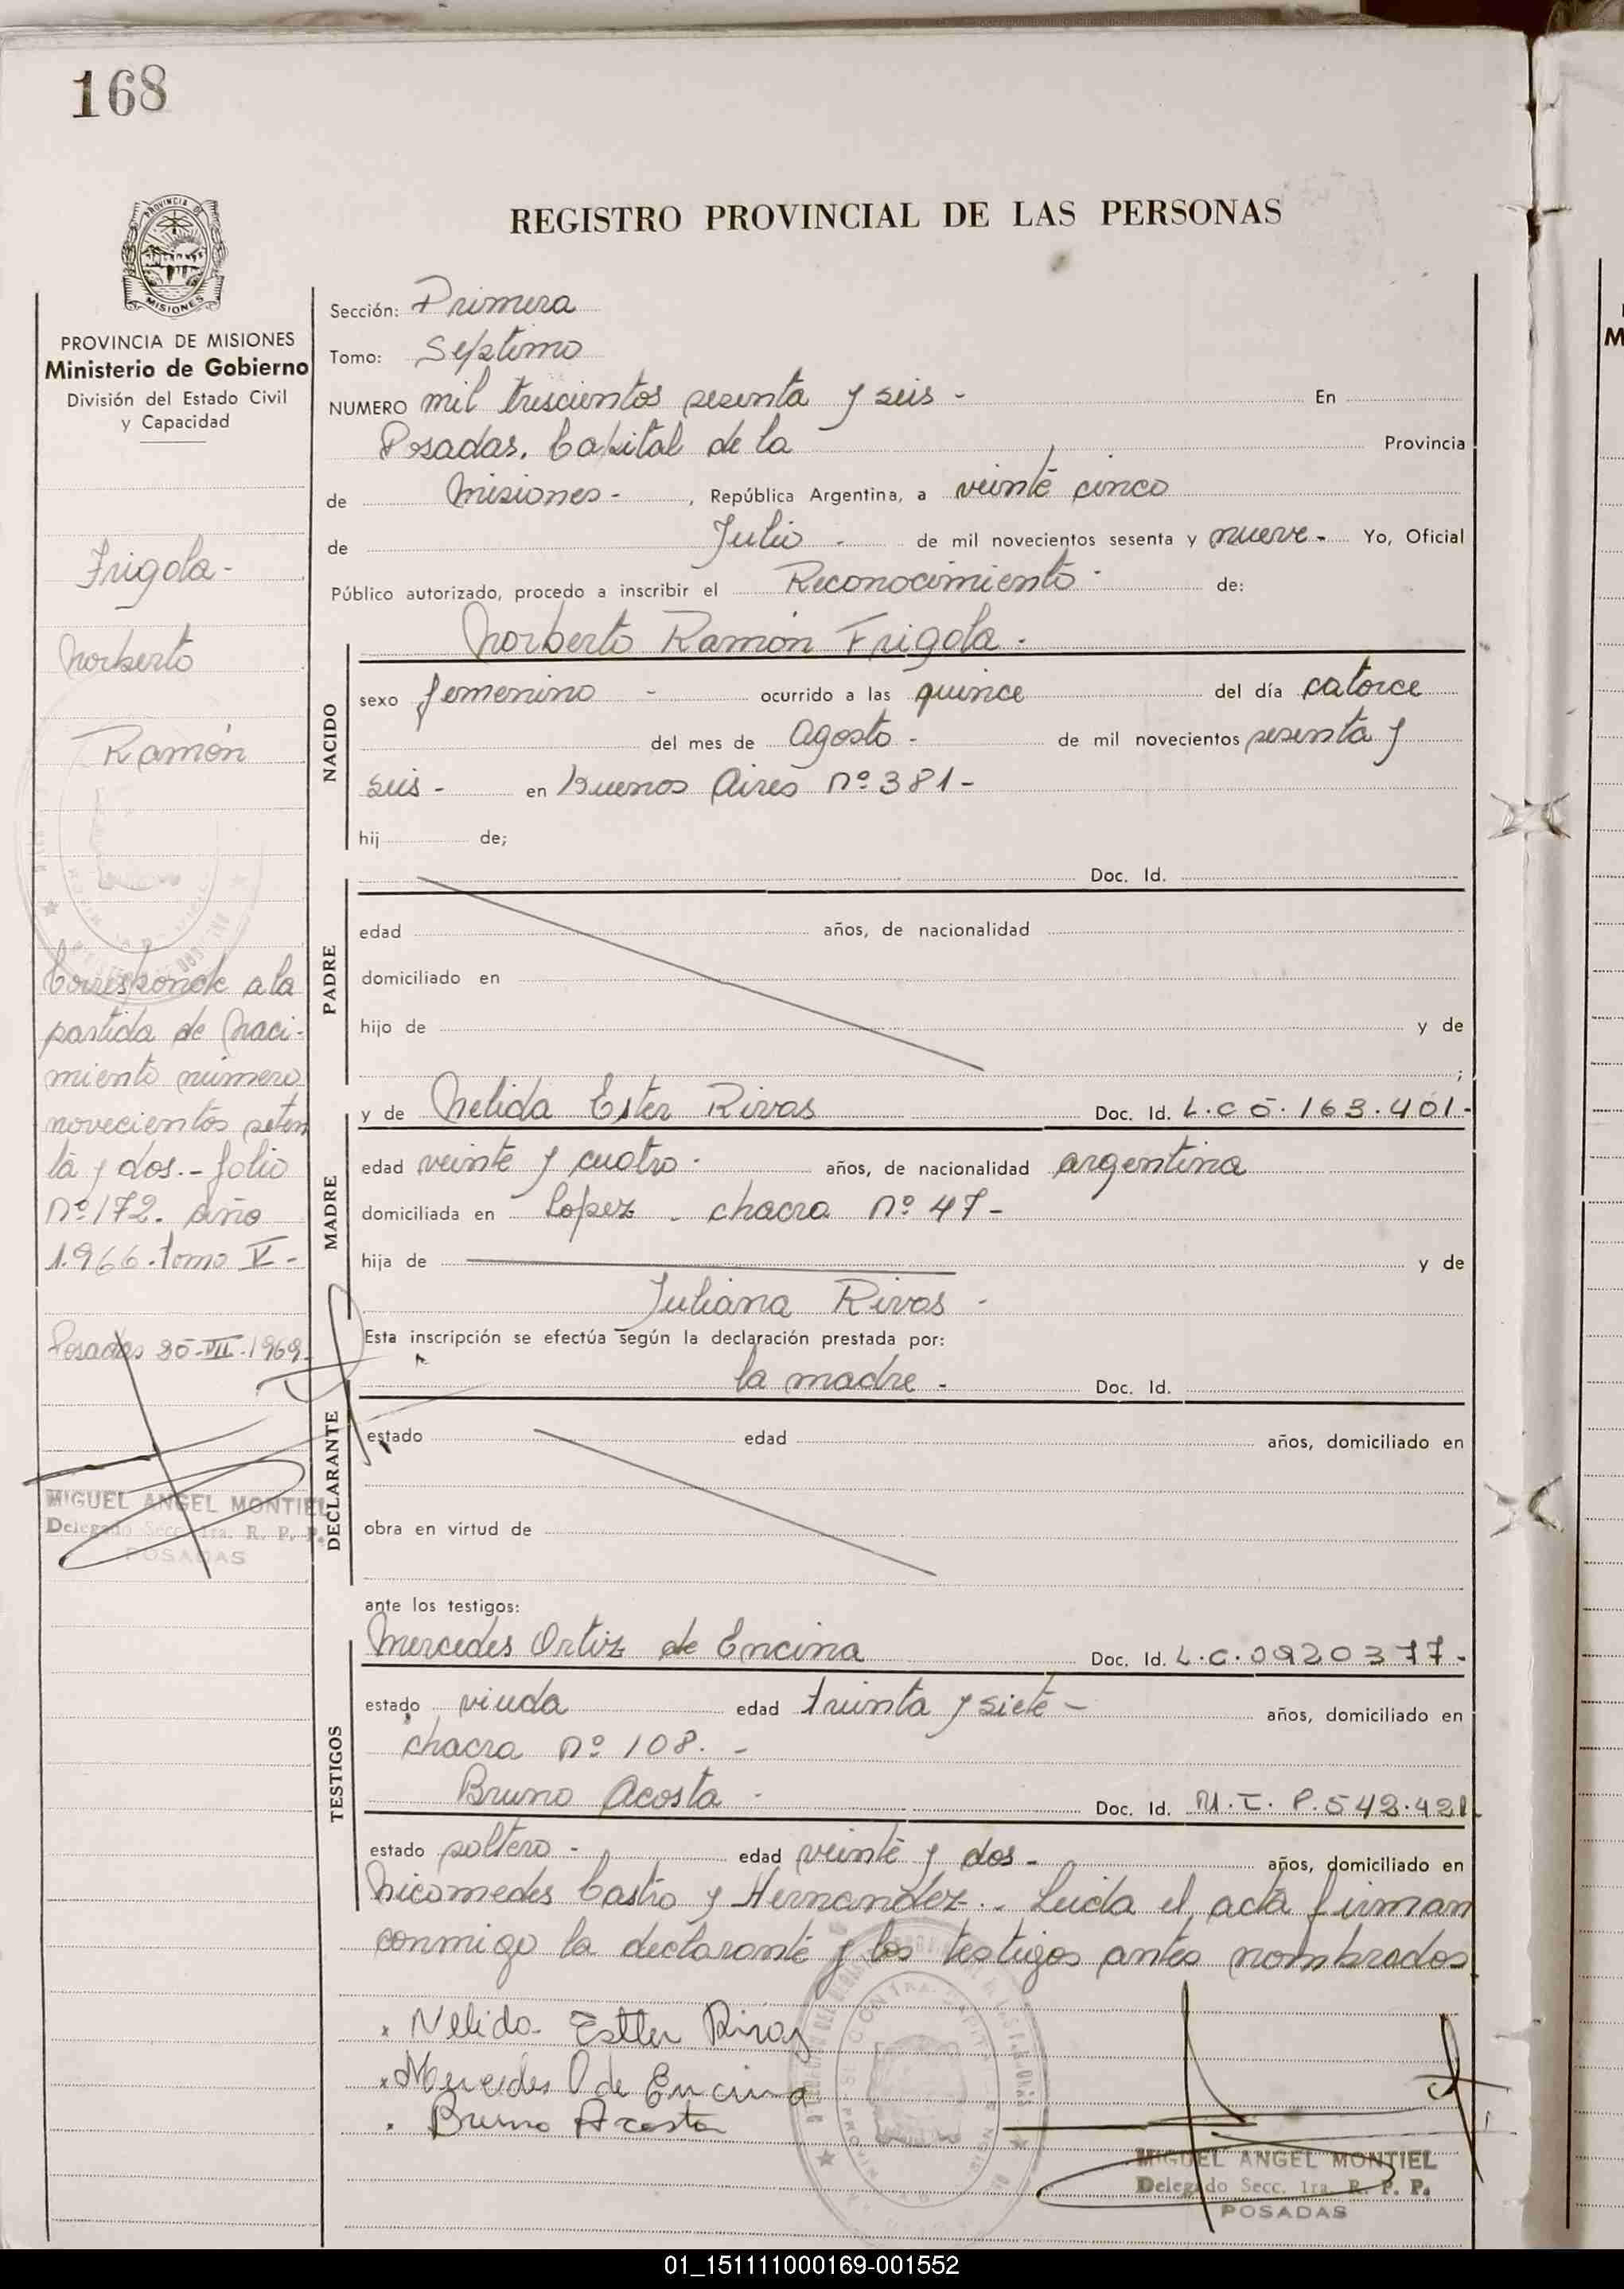 168
REGISTRO PROVINCIAL DE LAS PERSONAS
PROVINCIA DE
MISIONES
PROVINCIA DE MISIONES
Ministerio de Gobierno
División del Estado Civil
y Capacidad
Frigola-
Norberto
Ramón
Corresponde a la
partida de Naci-
miento número
novecientos seten
ta y dos.- folio
Nº 172. año
1.966. tomo V-
Posadas 25-VII-1969-
MIGUEL ANGEL MONTIEL
Delegado Secc. 1ra. R. P. P.
POSADAS
Sección: Primera
Tomo: Septimo
NUMERO mil trescientos sesenta y seis - En
Posadas. Capital de la Provincia
de Misiones- , República Argentina, a veinte cinco
de Julio - de mil novecientos sesenta y nueve- Yo, Oficial
Público autorizado, procedo a inscribir el Reconocimiento - de:
Norberto Ramón Frigola -
NACIDO
sexo femenino - ocurrido a las quince del día catorce
del mes de Agosto - de mil novecientos sesenta y
seis - en Buenos Aires Nº 381-
hij de;
Doc. Id.
PADRE
edad años, de nacionalidad
domiciliado en
hijo de y de
;
MADRE
y de Nelida Ester Rivas Doc. Id. L.C 5.163.401-
edad veinte y cuatro - años, de nacionalidad argentina
domiciliada en Lopez - chacra Nº 47-
hija de y de
Juliana Rivas -
Esta inscripción se efectúa según la declaración prestada por:
la madre - Doc. Id.
DECLARANTE
estado edad años, domiciliado en
obra en virtud de
ante los testigos:
TESTIGOS
Mercedes Ortiz de Encina Doc. Id. L.C. 0920377-
estado viuda edad treinta y siete - años, domiciliado en
chacra Nº 108. -
Bruno Acosta - Doc. Id. M.I. 8.542.421
estado soltero - edad veinte y dos - años, domiciliado en
Nicomedes Castro y Hernandez.- Leida el acta firman
conmigo la declarante y los testigos antes nombrados
x Nelida Ester Rivas
x Mercedes O de Encina
x Bruno Acosta
MIGUEL ANGEL MONTIEL
Delegado Secc. 1ra. R. P. P.
POSADAS
01_151111000169-001552